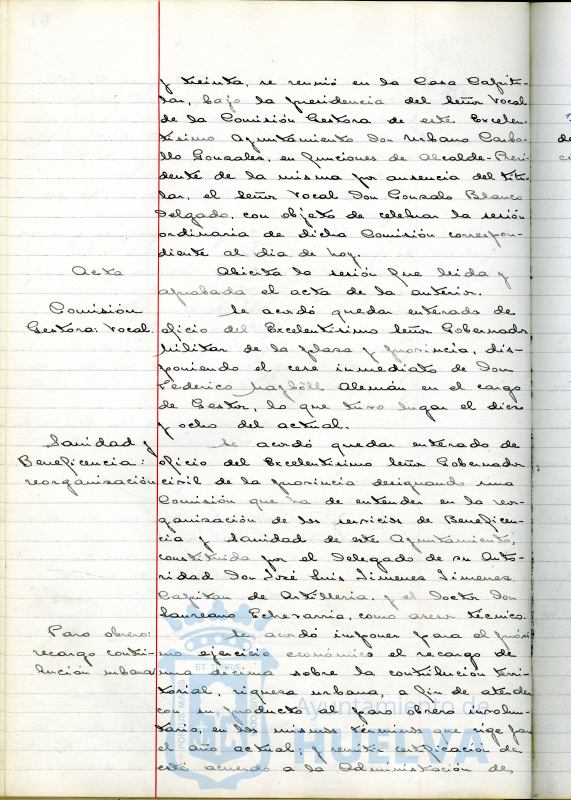 y treinta, se reunió en la Casa Capitu-
lar, bajo la presidencia del Señor Vocal
de la Comisión Gestora de este Excelen-
tísimo Ayuntamiento Don Urbano Carba-
llo Gonzales, en funciones de Alcalde-Presi-
dente de la misma por ausencia del titu-
lar, el Señor Vocal Don Gonzalo Blanco
Delgado, con objeto de celebrar la sesión
ordinaria de dicha Comisión correspon-
diente al dia de hoy.
Acta
Abierta la sesión que leida y
aprobada el acta de la anterior.
Comisión
Gestora: Vocal.
Se acordó quedar enterado de
oficio del Excelentísimo Señor Gobernador
Militar de la plaza y provincia, dis-
poniendo el cese inmediato de Don
Federico Alemán en el cargo
de Gestor, lo que tuvo lugar el diez
y ocho del actual.
Sanidad y
Beneficencia:
reorganización
Se acordó quedar enterado de
oficio del Excelentísimo Señor Gobernador
civil de la provincia designando una
Comisión que ha de entender en la reor-
ganización de los servicios de Beneficen-
cia y Sanidad de este Ayuntamiento,
constituida por el Delegado de su Auto-
ridad Don José Luis Jimenes Jimenes,
Capitan de Artilleria, y el Doctor Don
Laureano Echevarria, como asesor técnico.
Paro obrero:
recargo contri-
bución urbana
Se acordó imponer para el próxi-
mo ejercicio económico el recargo de
una décima sobre la contribución terri-
torial, riqueza urbana, a fin de atender
con su producto al paro obrero involun-
tario, en los mismos terminos que rige para
el año actual; y remitir certificación de
este acuerdo a la Administración de
Ayuntamiento de
HUELVA